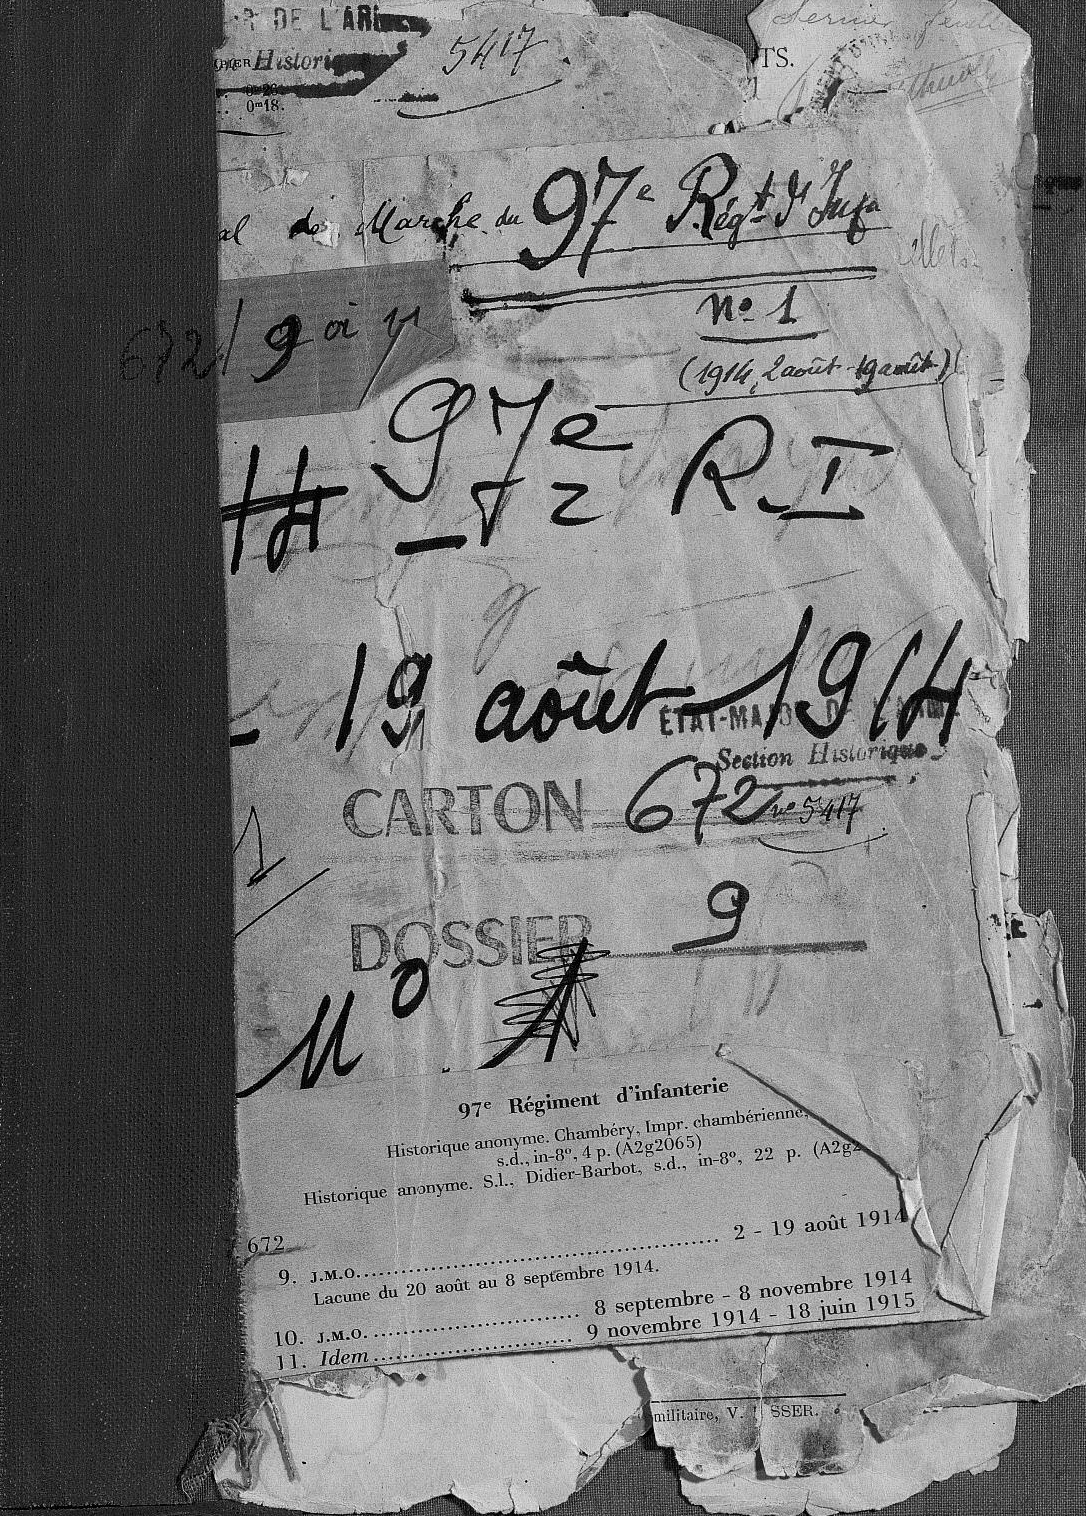 DE L'AR
5417.
TS.
Historiq
0m26.
0m18.
al de Marche du 97e Régt d'Infie
no 1
672/ 9 à 11
(1914, 2 août - 19 août)
97e R.I
19 août 1914
ÉTAT-MAJOR DE L'ARMÉE
Section Historique
CARTON 672 no 5417
1
DOSSIER 9
97e Régiment d'infanterie
Historique anonyme. Chambéry, Impr. chambérienne,
s.d., in-8º, 4 p. (A2g2065)
Historique anonyme. S.l., Didier-Barbot, s.d., in-8º, 22 p. (A2g2
672
9. J.M.O. 2 - 19 août 1914
Lacune du 20 août au 8 septembre 1914.
10. J.M.O. 8 septembre - 8 novembre 1914
11. Idem 9 novembre 1914 - 18 juin 1915
militaire, V. SSER.